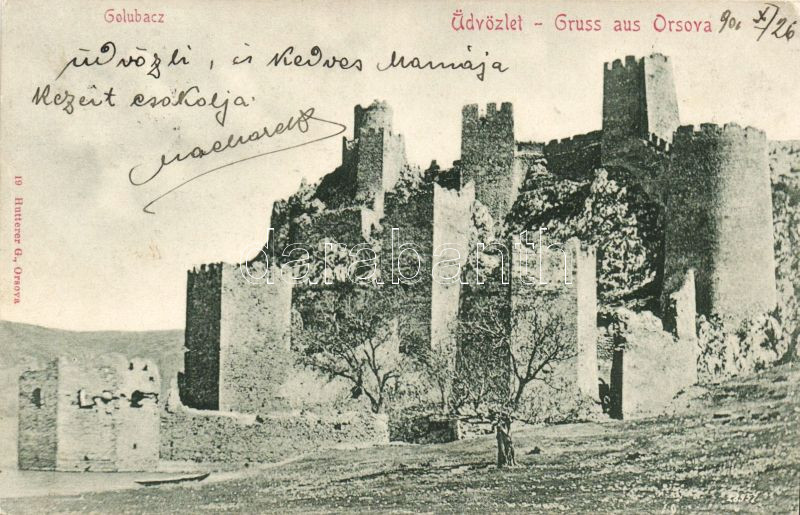 Golubacz
Üdvözlet - Gruss aus Orsova
901 X/26
üdvözli, és kedves Mamája
kezeit csókolja
19 Hutterer G., Orsova
darabanth